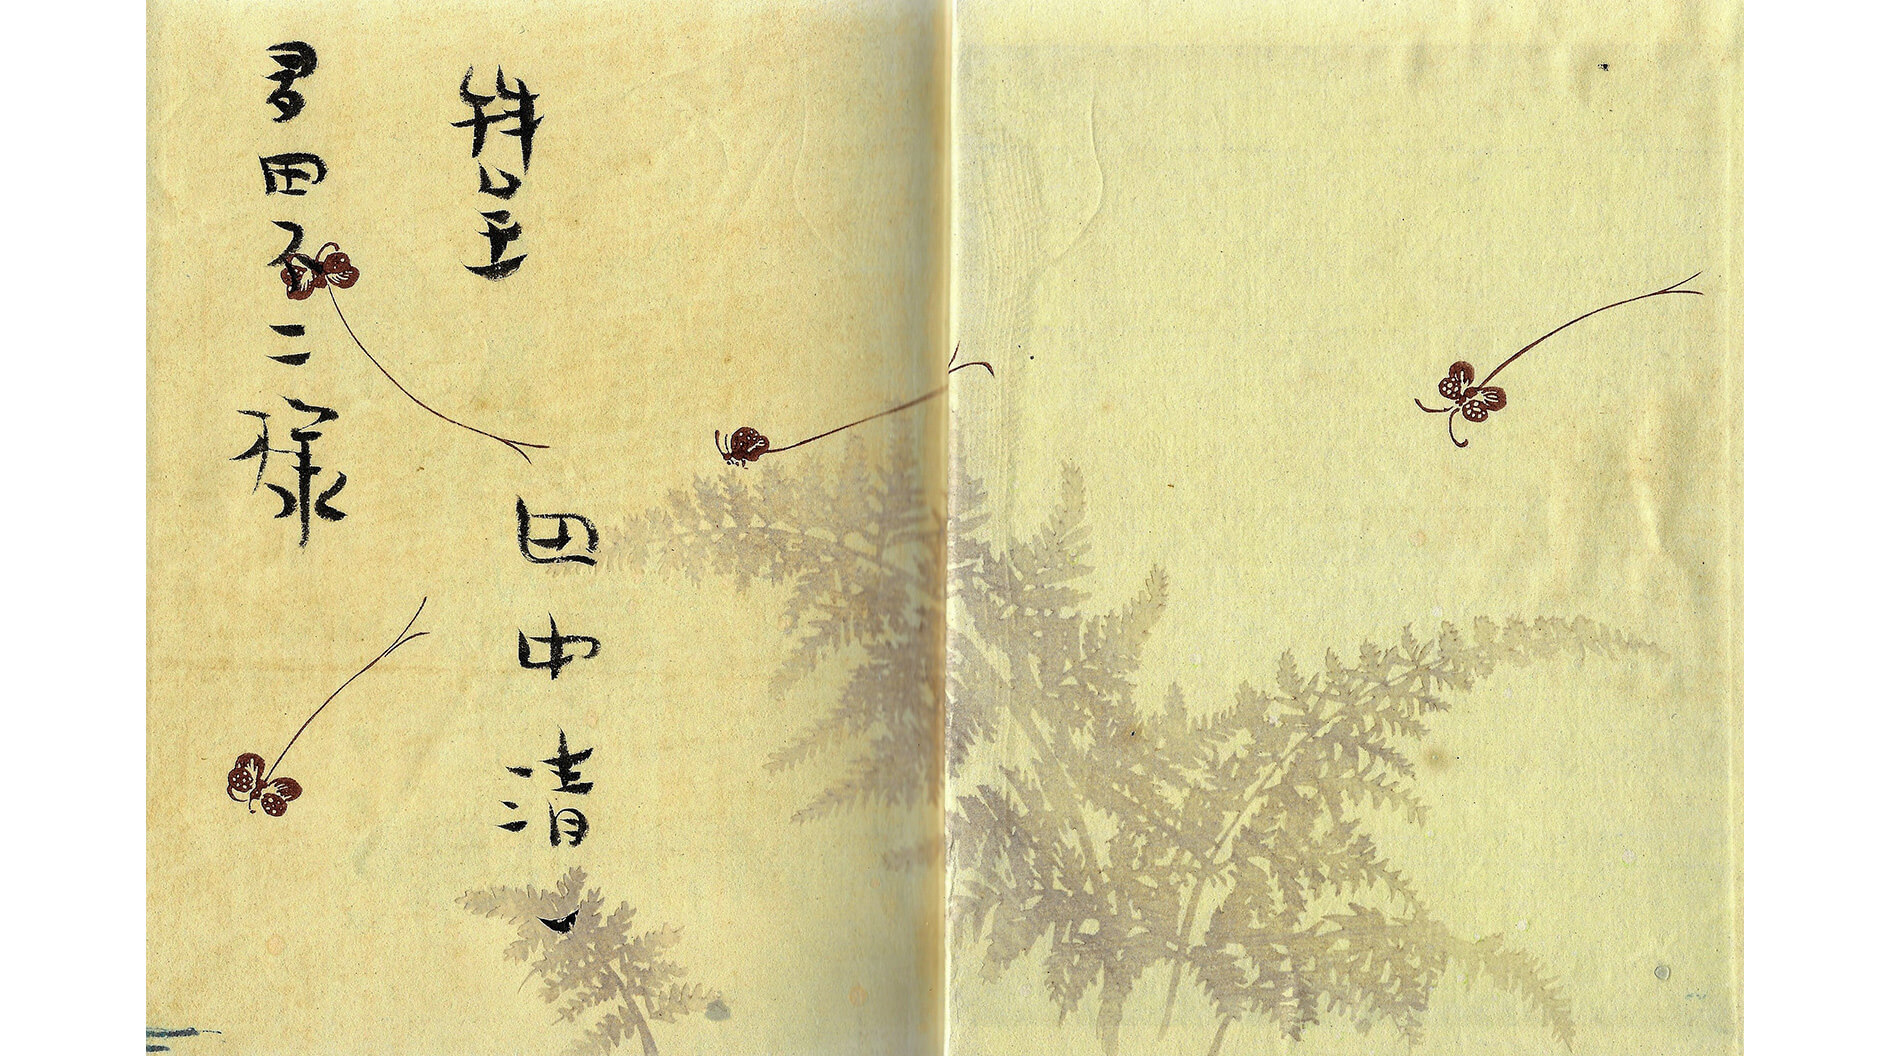 拝呈
田中清一
多田不二様